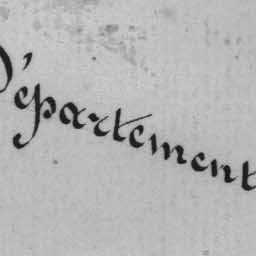 Département